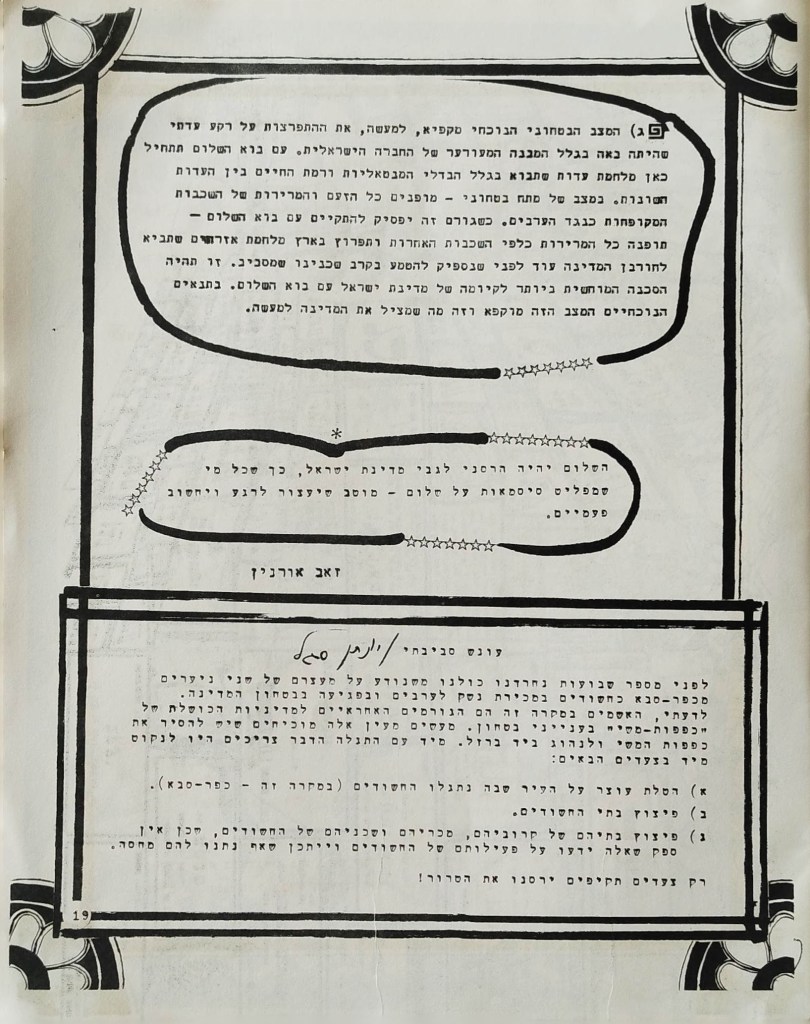 ג) המצב הבטחוני הנוכחי מקפיא, למעשה, את ההתפרצות על רקע עדתי
שהיתה באה בגלל המבנה המעורער של החברה הישראלית. עם בוא השלום תתחיל
כאן מלחמת עדות שתבוא בגלל הבדלי המנטאליות ורמת החיים בין העדות
השונות. במצב של מתח בטחוני - מופנים כל הזעם והמרירות של השכבות
המקופחות כנגד הערבים. כשגורם זה יפסיק להתקיים עם בוא השלום —
תופנה כל המרירות כלפי השכבות האחרות ותפרוץ בארץ מלחמת אזרחים שתביא
לחורבן המדינה עוד לפני שנספיק להטמע בקרב שכנינו שמסביב. זו תהיה
הסכנה המוחשית ביותר לקיומה של מדינת ישראל עם בוא השלום. בתנאים
הנוכחיים המצב הזה מוקפא וזה מה שמציל את המדינה למעשה.
*
השלום יהיה הרסני לגבי מדינת ישראל, כך שכל מי
שמפליט סיסמאות על שלום - מוטב שיעצור לרגע ויחשוב
פעמיים.
זאב אורנין
עונש סביבתי / יונתן סגל
לפני מספר שבועות נחרדנו כולנו משנודע על מעצרם של שני ניערים
מכפר-סבא כחשודים במכירת נשק לערבים ובפגיעה בבטחון המדינה.
לדעתי, האשמים במקרה זה הם הגורמים האחראיים למדיניות הכושלת של
"כפפות-משי" בענייני בטחון. מעשים מעין אלה מוכיחים שיש להסיר את
כפפות המשי ולנהוג ביד ברזל. מיד עם התגלה הדבר צריכים היו לנקוט
מיד בצעדים הבאים:
א) הטלת עוצר על העיר שבה נתגלו החשודים (במקרה זה - כפר-סבא).
ב) פיצוץ בתי החשודים.
ג) פיצוץ בתיהם של קרוביהם, מכריהם ושכניהם של החשודים, שכן אין
ספק שאלה ידעו על פעילותם של החשודים וייתכן שאף נתנו להם מחסה.
רק צעדים תקיפים ירסנו את הטרור!
19